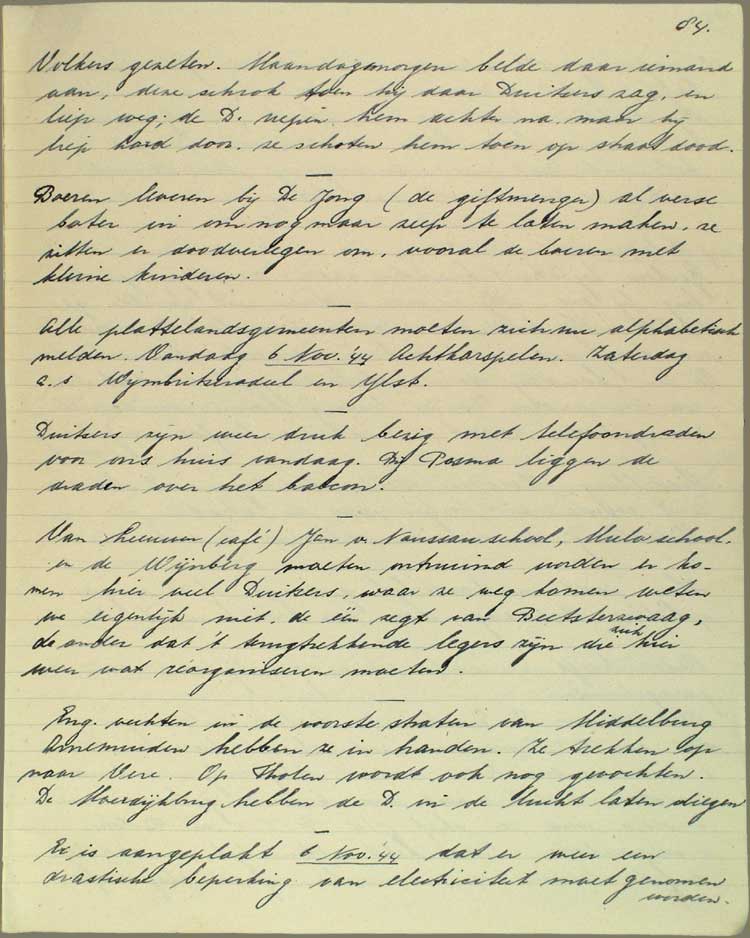 84.
Volkers gezeten. Maandagmorgen belde daar iemand
aan, deze schrok toen hij daar Duitkers zag, en
liep weg; de D. riepen hem achter na maar hij
liep hard door. ze schoten hem toen op straat dood.
Boeren leveren bij De Jong (de giftmenger) al verse
boter in om nog maar zeep te laten maken, ze
zitten er doodverlegen om, vooral de boeren met
kleine kinderen.
Alle plattelandsgemeenten moeten zich nu alphabetisch
melden. Vandaag 6 Nov. '44 Achtkarspelen. Zaterdag
a.s Wymbritseradeel en Ylst.
Duitsers zijn weer druk bezig met telefoondraden
voor ons huis vandaag. Bij Posma liggen de
draden over het balcon.
Van Leeuwen (café) Jan v. Nassau school, Mulo school.
en de Wijnberg moeten ontruimd worden er ko-
men hier veel Duitkers, waar ze weg komen weten
we eigenlijk niet. de één zegt van Beetsterzwaag,
de ander dat 't terugtrekkende legers zijn die zich hier
weer wat reorganiseren moeten.
Eng. vechten in de voorste straten van Middelburg
Arnemuiden hebben ze in handen. Ze trekken op
naar Vere. Op Tholen wordt ook nog gevochten.
De Moerdijkbrug hebben de D. in de lucht laten vliegen
Er is aangeplakt 6 Nov. '44 dat er weer een
drastische beperking van electriciteit moet genomen
worden.